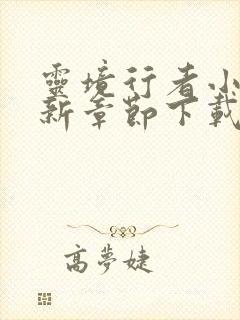 靈境行者小
新章節下載
高夢婕